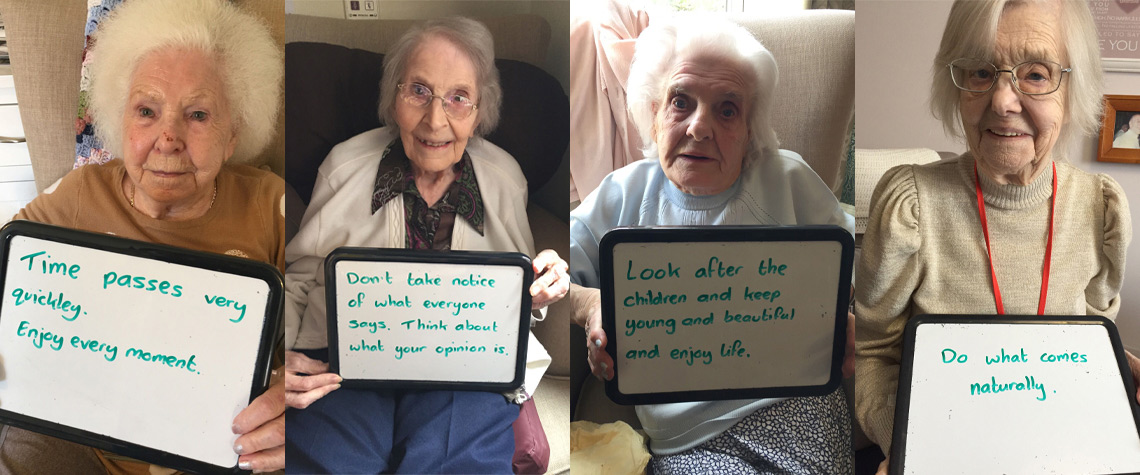 Time passes very
quickley.
Enjoy every moment.
Don't take notice
of what everyone
says. Think about
what your opinion is.
Look after the
children and keep
young and beautiful
and enjoy life.
Do what comes
naturally.